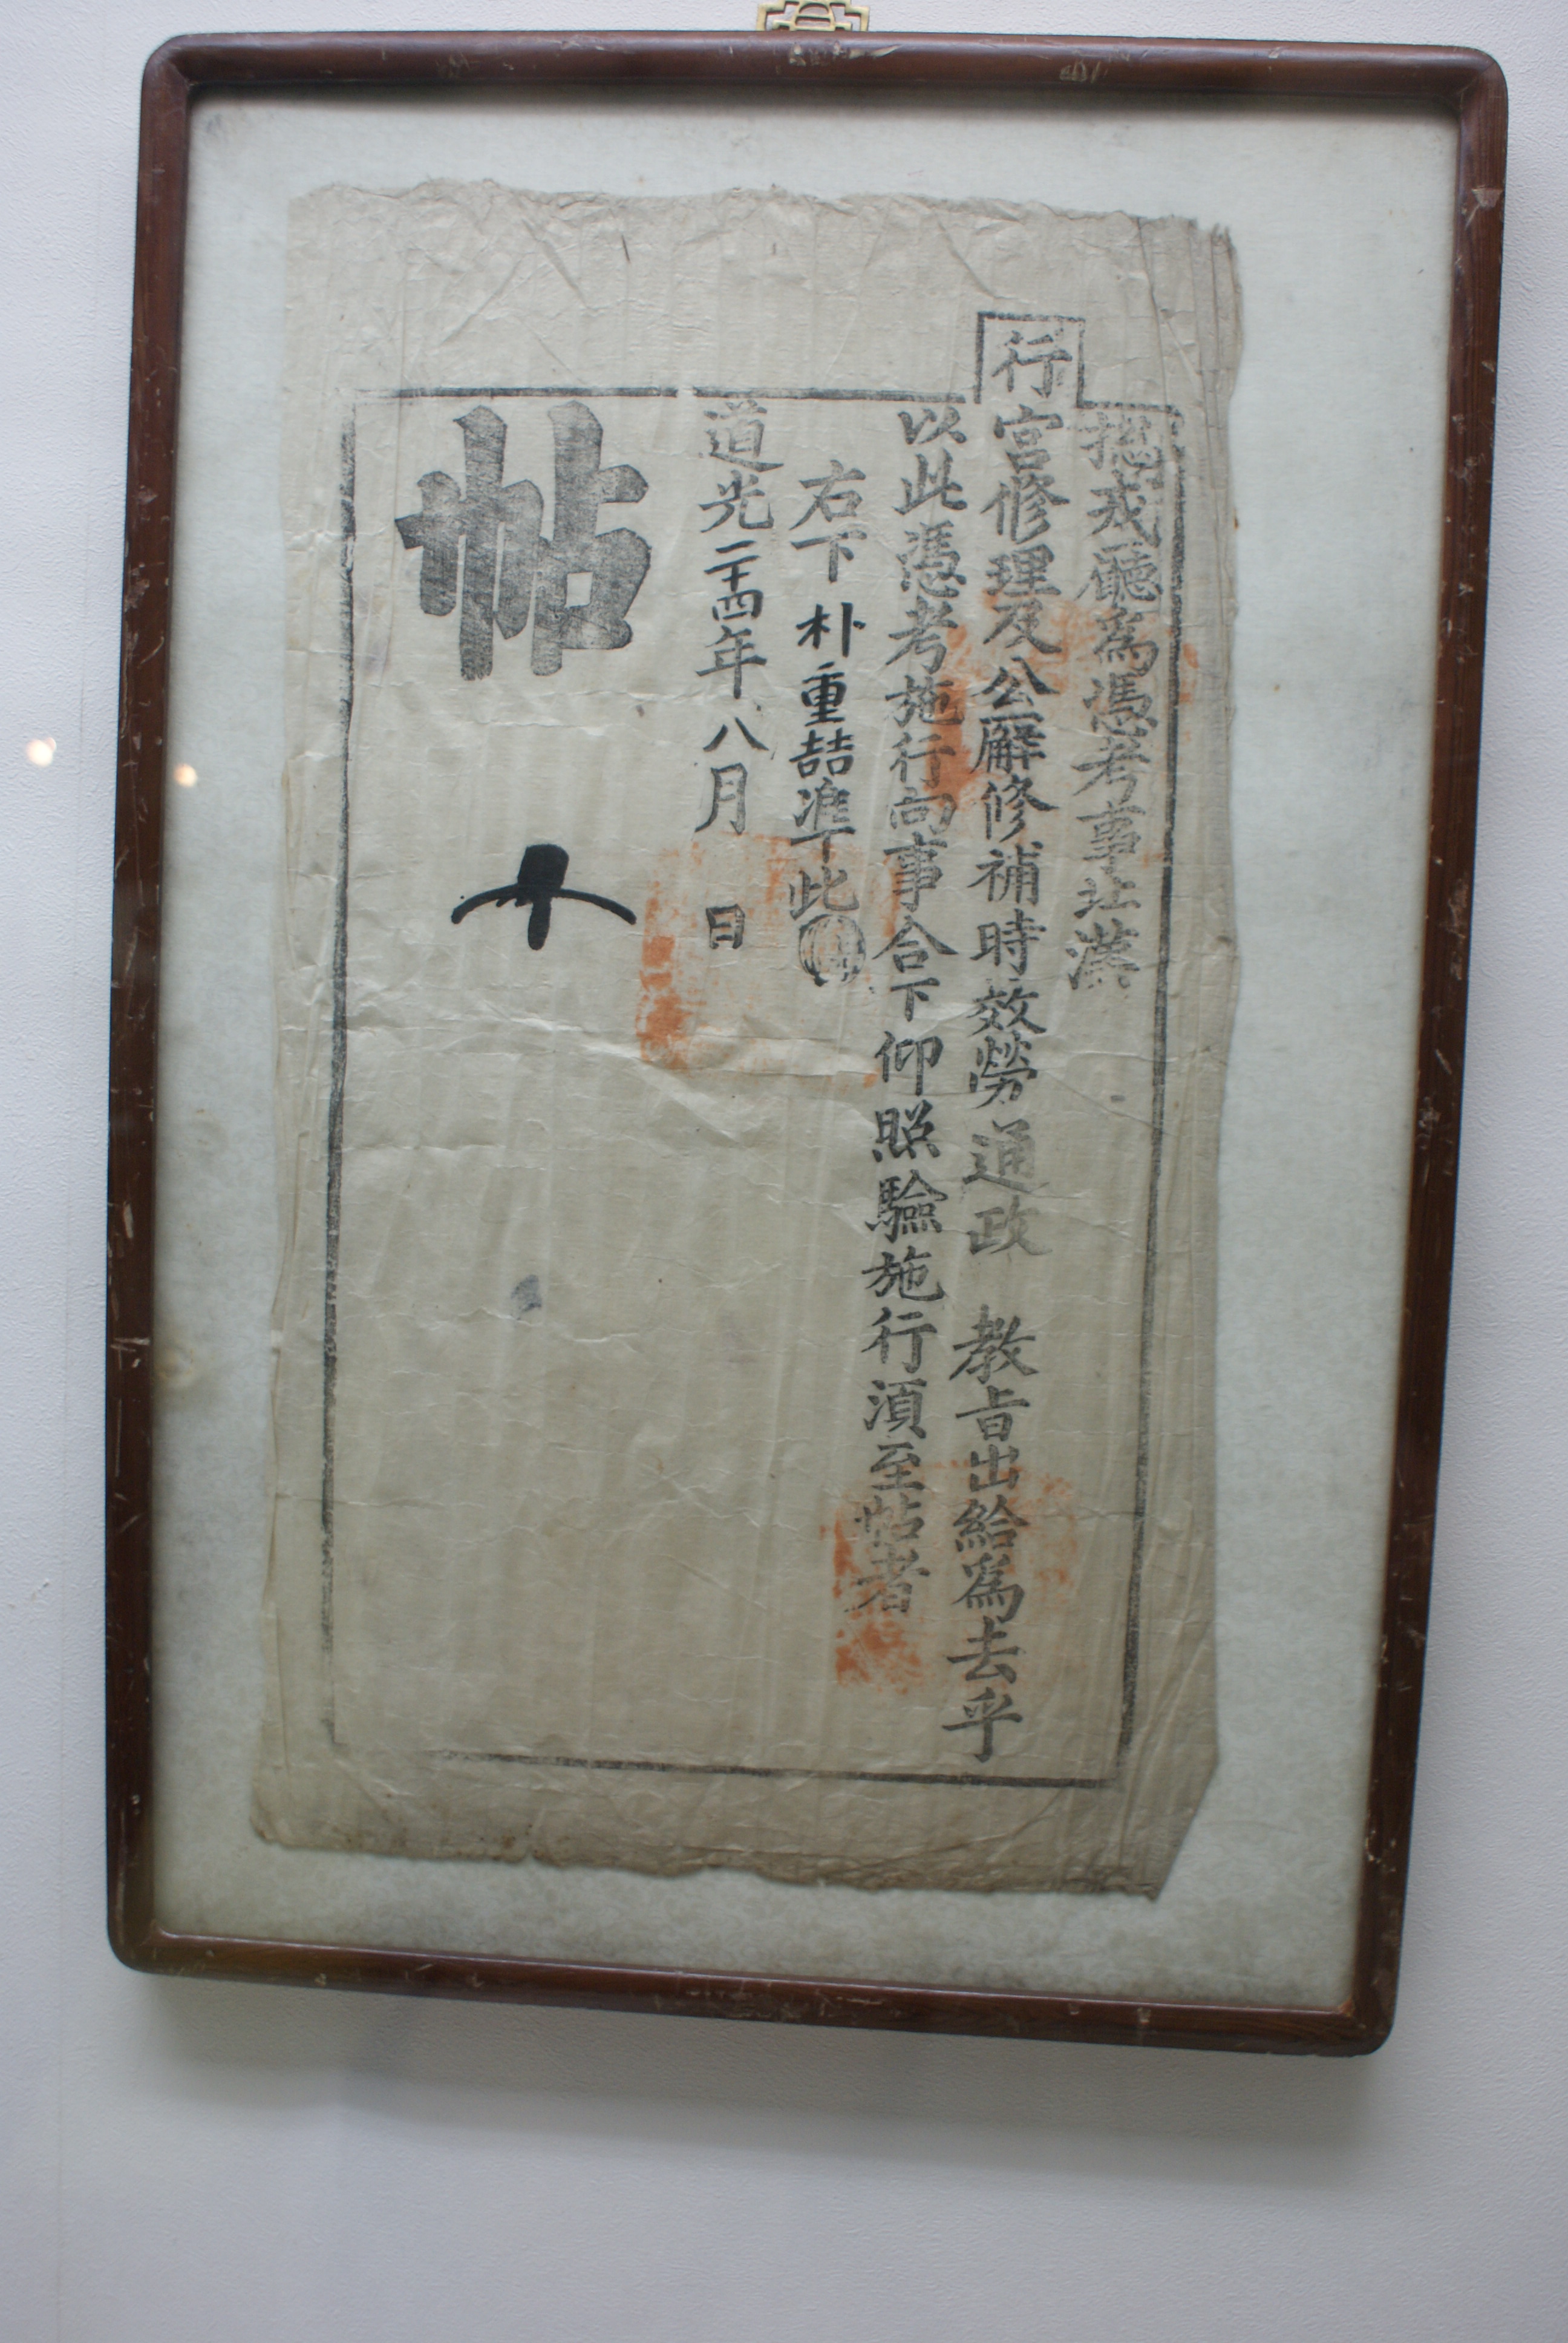 摠戎廳爲憑考事北漢
行宮修理及公廨修補時效勞通政 教旨出給爲去乎
以此憑考施行向事合下仰照驗施行須至帖者
右下朴重喆準此
道光二十四年八月 日
帖